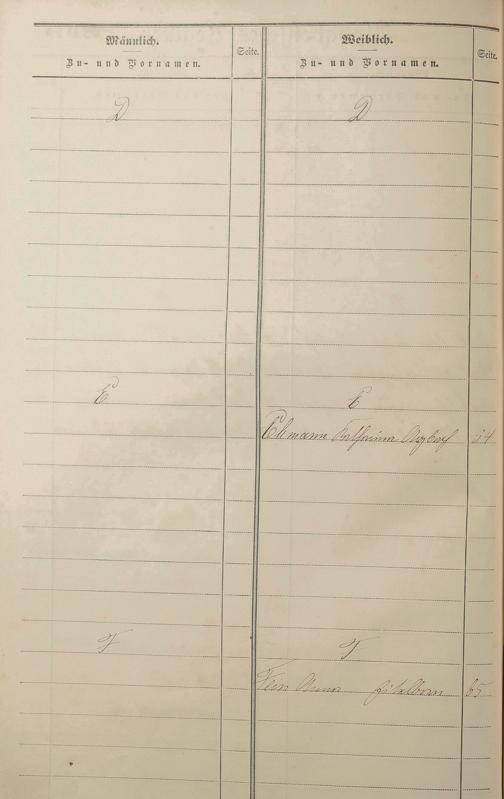 Männlich.
Zu- und Vornamen.
Seite.
Weiblich.
Zu- und Vornamen.
Seite.
D
D
E
E
Ehmann Katharina 34
F
F
Fein Anna 65